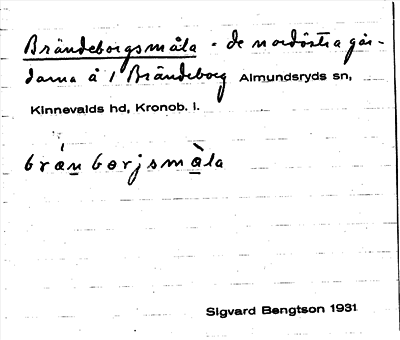 Brändeborgsmåla - de nordöstra går-
darna å 1 Brändeborg Almundsryds sn,
Kinnevalds hd, Kronob. l.
brǽn borjsmàla
Sigvard Bengtson 1931